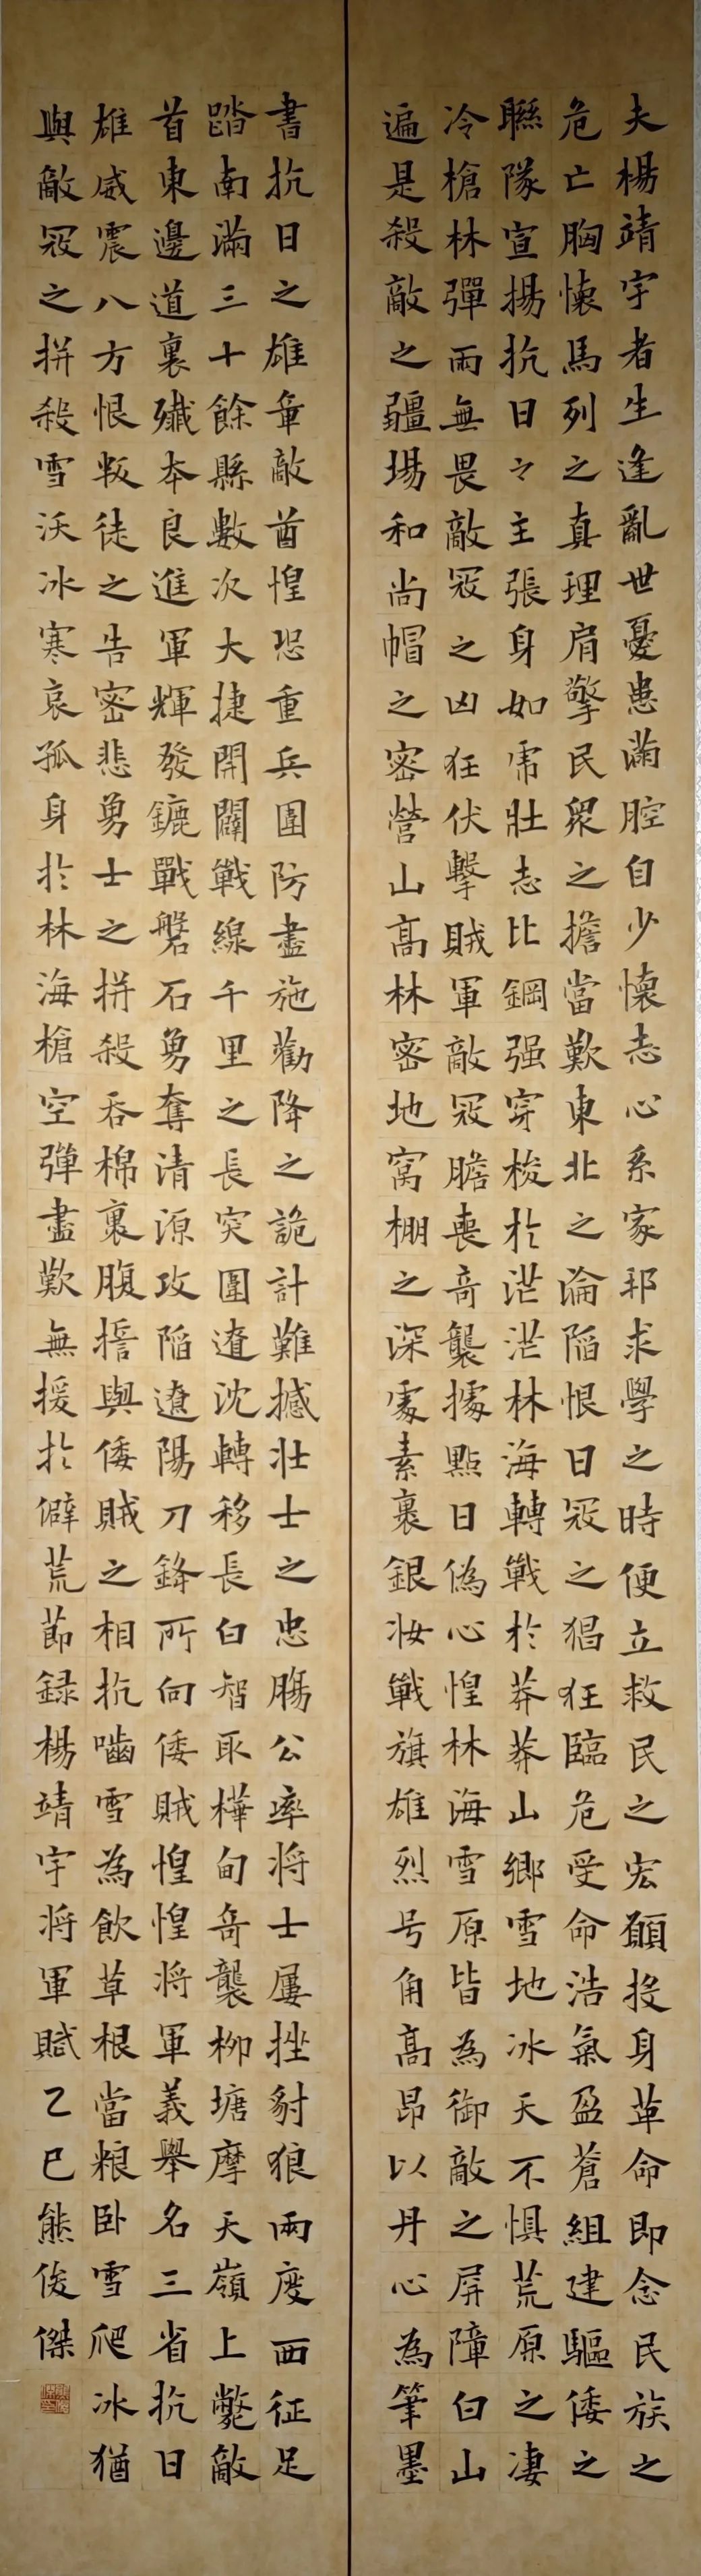 夫楊靖宇者生逢亂世憂患滿腔自少懷志心系家邦求學之時便立救民之宏願投身革命即念民族之
危亡胸懷馬列之真理肩擎民衆之擔當歎東北之淪陷恨日冦之猖狂臨危受命浩氣盈蒼組建驅倭之
聯隊宣揚抗日々主張身如席壯志比鋼强穿梭於茫茫林海轉戰於莽莽山鄉雪地冰天不懼荒原之凄
冷槍林彈雨無畏敵冦之凶狂伏擊賊軍敵冦膽喪奇襲據點日偽心惶林海雪原皆為御敵之屏障白山
遍是殺敵之疆場和尚帽之密營山高林密地窩棚之深處素裹銀妝戰旗雄烈号角高昂以丹心為筆墨
書抗日之雄章敵酋惶恐重兵圍防盡施勸降之詭計難撼壯士之忠腸公率將士屢挫豺狼兩度西征足
踏南滿三十餘縣數次大捷開闢戰線千里之長突圍遼沈轉移長白智取樺甸奇襲柳塘摩天嶺上斃敵
首東邊道裏殲本良進軍輝發鏖戰磐石勇奪清源攻陷遼陽刀鋒所向倭賊惶惶將軍義舉名三省抗日
雄威震八方恨叛徒之告密悲勇士之拼殺吞棉裹腹擔與倭賊之相抗嚙雪為飲草根當粮卧雪爬冰猶
與敵冦之拼殺雪沃冰寒哀孤身於林海槍空彈盡歎無援於僻荒節録楊靖宇將軍賦乙巳熊俊傑